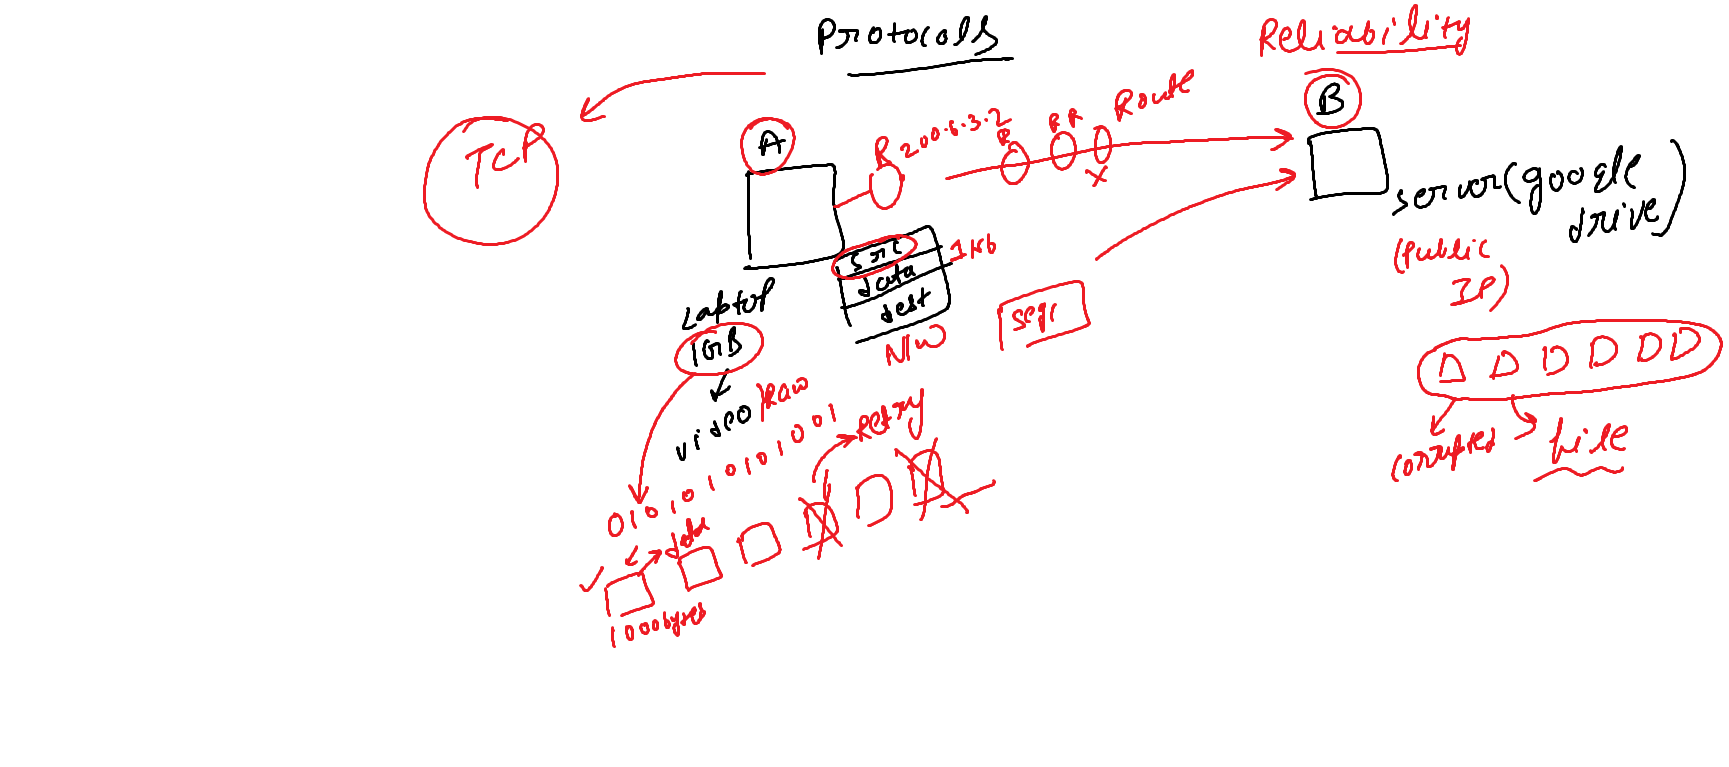 Protocols
Reliability
TCP
A
R 200.6.3.2
R
R R
Route
X
B
server(google
drive)
(Public
IP)
src
data
dest
1Kb
N/W
Laptop
1GB
video/Raw
0101010101001
Retry
data
1000bytes
D D D D D D
corrupted
file